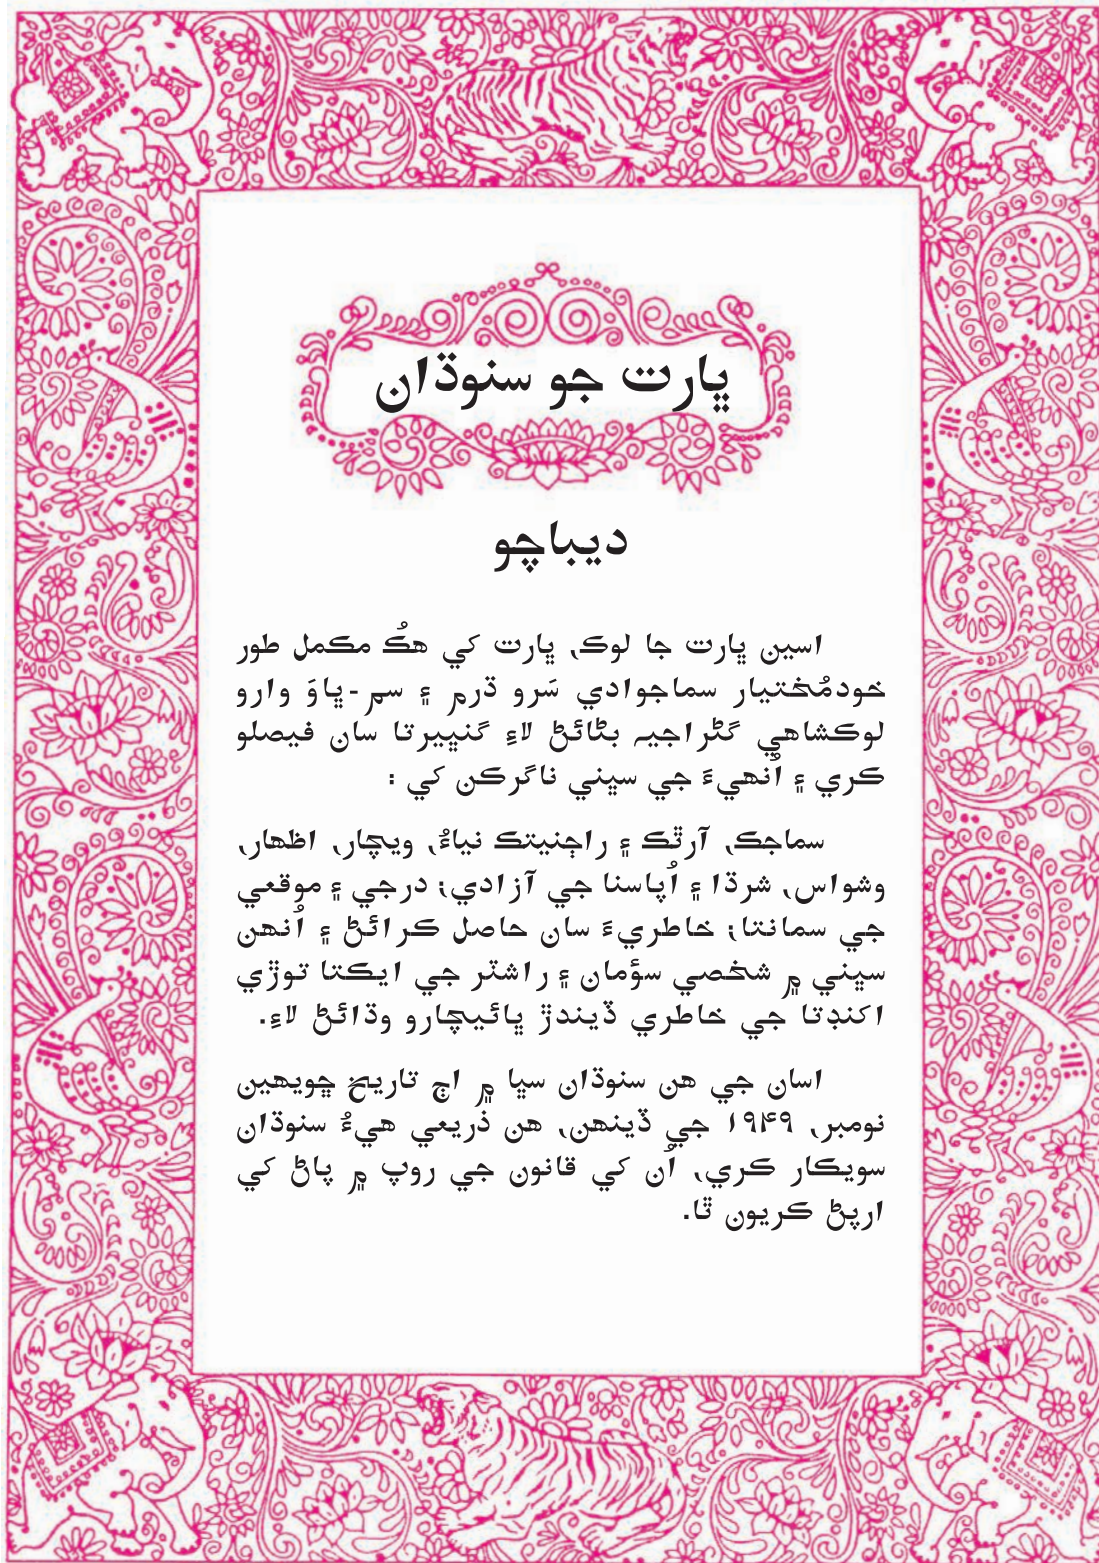 ڀارت جو سنوڌان
ديباچو
اسين ڀارت جا لوڪ، ڀارت کي هڪُ مڪمل طور
خودمُختيار سماجوادي سَرو ڌرم ۽ سم-ڀاوَ وارو
لوڪشاهي گڻراجيہ بڻائڻ لاءِ گنڀيرتا سان فيصلو
ڪري ۽ اُنهيءَ جي سڀني ناگرڪن کي :
سماجڪ، آرٿڪ ۽ راجنيتڪ نياءُ، ويچار، اظهار،
وشواس، شرڌا ۽ اُپاسنا جي آزادي؛ درجي ۽ موقعي
جي سمانتا؛ خاطريءَ سان حاصل ڪرائڻ ۽ اُنهن
سڀني ۾ شخصي سؤمان ۽ راشٽر جي ايڪتا توڙي
اکنڊتا جي خاطري ڏيندڙ ڀائيچارو وڌائڻ لاءِ.
اسان جي هن سنوڌان سڀا ۾ اڄ تاريخ ڇويهين
نومبر، ۱۹۴۹ جي ڏينهن، هن ذريعي هيءُ سنوڌان
سويڪار ڪري، اُن کي قانون جي روپ ۾ پاڻ کي
ارپڻ ڪريون ٿا.